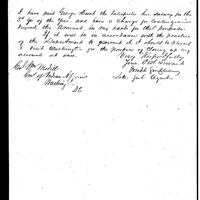 I have paid George Hunt the Interpreter his salary for the
3d qr of the year, and have a charge for Contingencies
beyond the amount in my hands for that purpose.
If it be in accordance with the practice
of the Department to permit it, I should be pleased
to visit Washington for the purpose of closing up my
account at once.
Very Respectfully
Your Obt Servant
Col. Wm Medill
Com of Indian Affairs
Late Sub Agent
Washington
D.C.